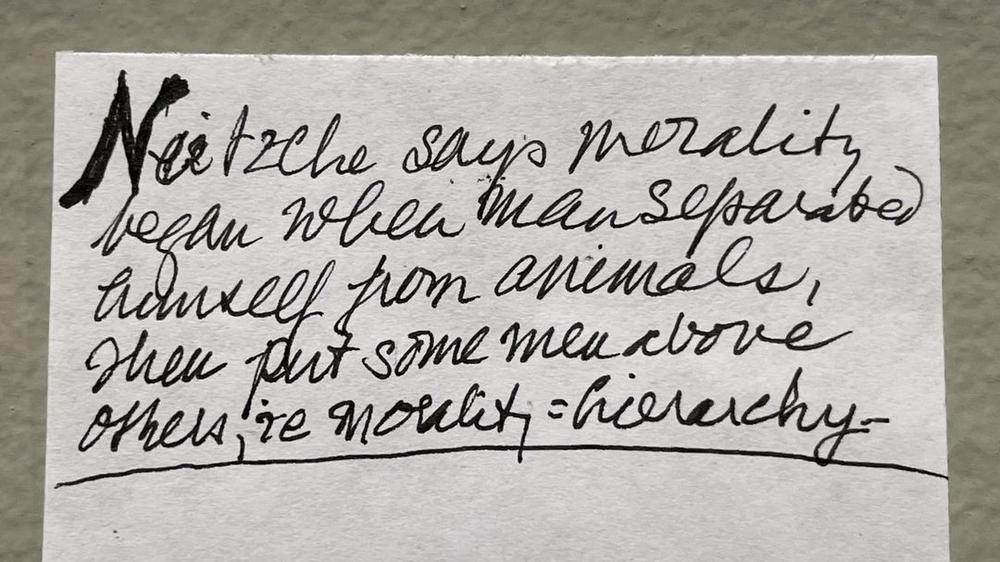 Neitzche says morality
began when man separated
himself from animals,
then put some men above
others, ie morality = hierarchy-